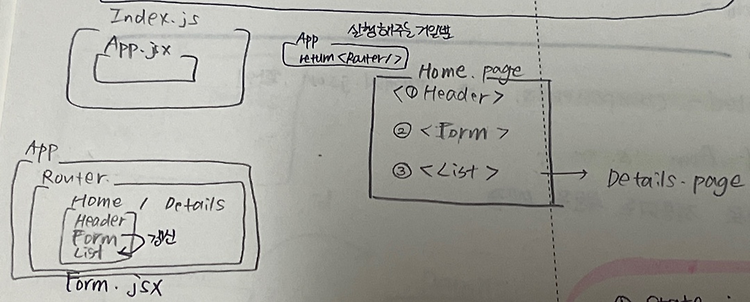 Index.js
App.jsx
실행해주는 거일뿐
App
return <Router/>
Home.page
<① Header>
② <Form>
③ <List> → Details.page
App
Router
Home / Details
Header
Form 갱신
List
Form.jsx